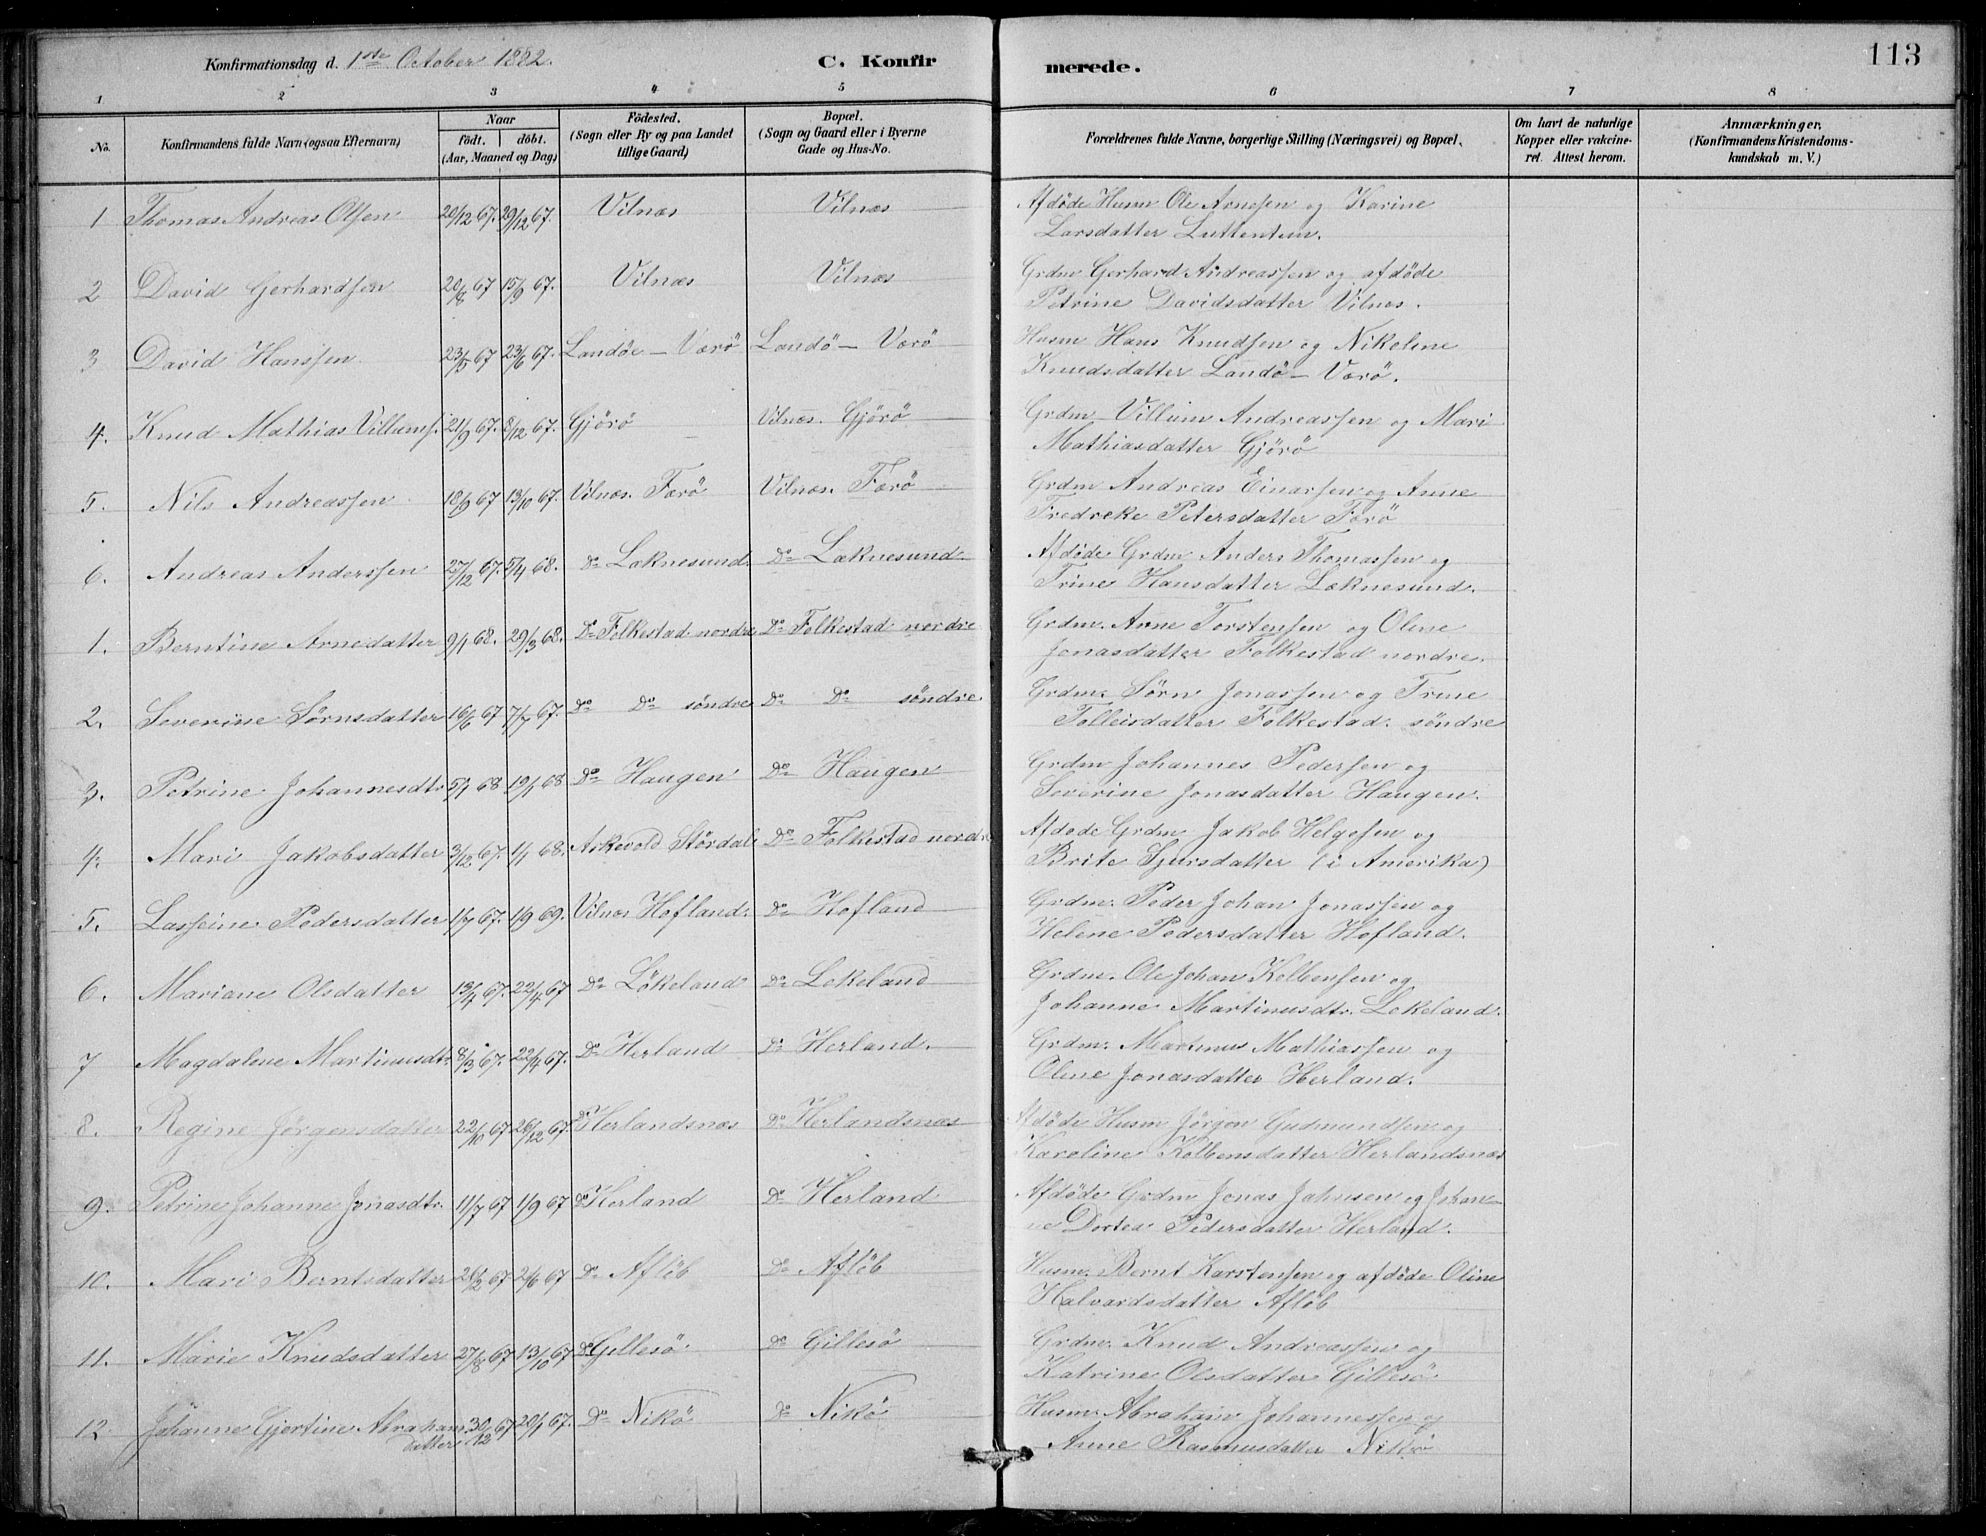 Konfirmationsdag d. 1ste October 1882. C. Konfirmerede. 113
1 2 3 4 5 6 7 8
No. Konfirmandens fulde Navn (ogsaa Efternavn) Naar födt. döbt. (Aar, Maaned og Dag) Födested. (Sogn eller By og paa Landet tillige Gaard) Bopæl. (Sogn og Gaard eller i Byerne Gade og Hus-No. Forældrenes fulde Navne, borgerlige Stilling (Næringsvei) og Bopæl. Om havt de naturlige Kopper eller vakcineret. Attest herom. Anmærkninger. (Konfirmandens Kristendomskundskab m. V.)
1 Thomas Andreas Olsen 20/12 67. 29/12 67. Vilnæs Vilnæs Afdöde Husm Ole Arnesen og Karine
Larsdatter Luttentun.
2 David Gerhardsen 20/8 67 15/9 67. Vilnæs Vilnæs Grdm Gerhard Andreassen og afdöde
Petrine Davidsdatter Vilnæs.
3 David Hanssen 23/5 67 23/6 67. Landöe - Værö Landö - Værö Husm Hans Knudsen og Nikoline
Knudsdatter Landö - Værö.
4. Knud Mathias Villums. 21/9 67. 8/12 67. Gjörö Vilnæs. Gjörö Grdm Villum Andreassen og Mari
Mathiasdatter Gjörö
5. Nils Andreassen 18/9 67 13/10 67. Vilnæs. Færö Vilnæs. Færö Grdm Andreas Einarsen og Anne
Fredreke Petersdatter Færö
6. Andreas Anderssen 27/12 67. 5/4 68. Do Læknesund. Do Læknesund Afdöde Grdm Anders Thomassen og
Trine Hansdatter Læknesund.
1. Berntine Arnedatter 9/1 68. 29/3 68. Do Folkestad nordre Do Folkestad nordre Grdm. Arne Torstensen og Oline
Jonasdatter Folkestad nordre.
2. Severine Sörnsdatter 16/6 67 7/7 67. Do Do söndre Do Do söndre Grdm. Sörn Jonassen og Trine
Tolleisdatter Folkestad. söndre
3. Petrine Johannesdtr 5/1 68 19/1 68 Do Haugen Do Haugen Grdm Johannes Pedersen og
Severine Jonasdatter Haugen.
4. Mari Jakobsdatter 3/12 67. 1/1 68. Askevold Stördal Do Folkestad nordre Afdöde Grdm Jakob Helgesen og
Brite Sjursdatter (i Amerika)
5. Lasseine Pedersdatter 1/7 67. 1/9 69. Vilnæs Hofland. Do Hofland Grdm. Peder Johan Jonassen og
Helene Pedersdatter Hofland.
6. Mariane Olsdatter 13/4 67. 22/4 67 Do Lökeland Do Lekeland Grdm. Ole Johan Kolbensen og
Johanne Martinusdtr. Lekeland.
7 Magdalene Martinusdtr. 8/3 67. 22/4 67. Do Herland Do Herland. Grdm. Martinus Mathiassen og
Oline Jonasdatter Herland.
8. Regine Jörgensdatter 22/10 67 26/12 67. Do Herlandsnæs Do Herlandsnæs Afdöde Husm Jörgen Gudmundsen og
Karoline Kolbensdatter Herlandsnæs
9. Petrine Johanne Jonasdtr. 11/7 67 1/9 67 Do Herland Do Herland Afdöde Grdm Jonas Johnsen og Johan-
ne Dortea Pedersdatter Herland.
10. Mari Berntsdatter 67 2/6 67 Do Aflöb Do Aflöb Husm. Bernt Karstensen og afdöde Oline
Halvardsdatter Aflöb
11. Marie Knudsdatter 27/8 67 13/10 67 Do Gillesö. Do Gillesö Grdm. Knud Andreassen og
Katrine Olsdatter Gillesö
12 Johanne Gjertine Abraham 30/12 67 20/1 67. Do Nikö Do Nikö Husm. Abraham Johannessen og
datter Anne Rasmusdatter Nikkö